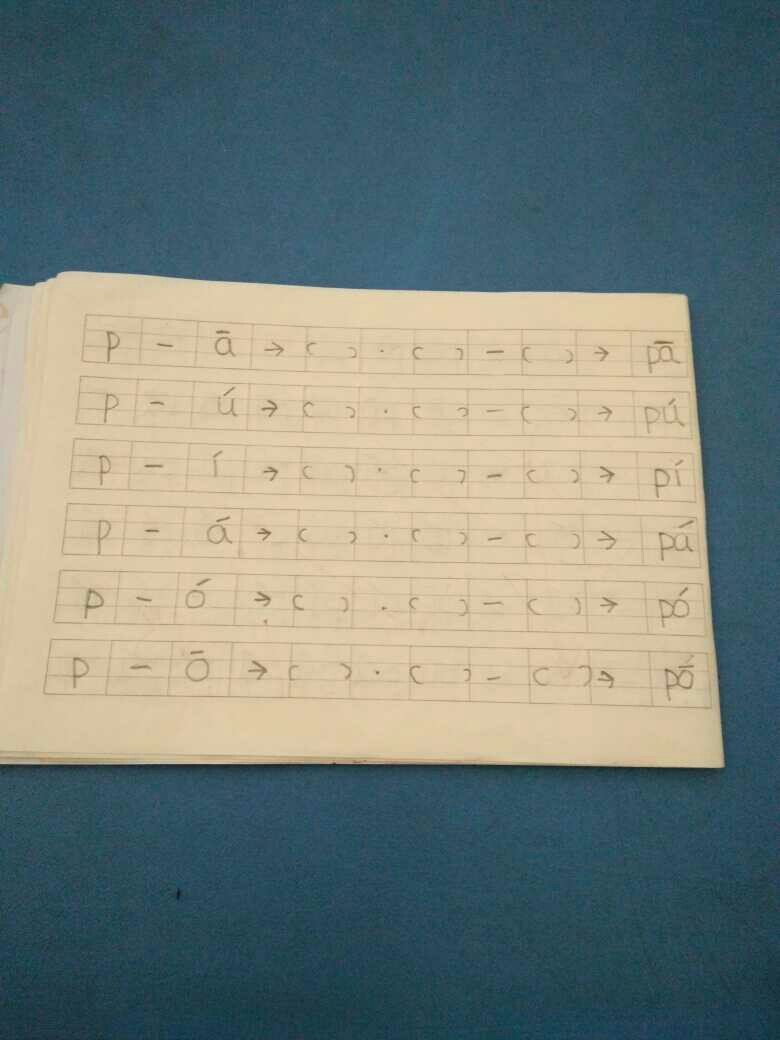 p - ā → ( ) · ( ) - ( ) → pā
p - ú → ( ) · ( ) - ( ) → pú
p - í → ( ) · ( ) - ( ) → pí
p - á → ( ) · ( ) - ( ) → pá
p - ó → ( ) · ( ) - ( ) → pó
p - ō → ( ) · ( ) - ( ) → pō